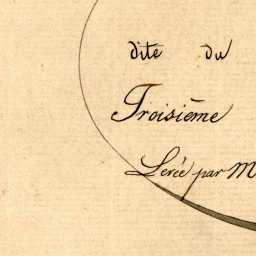 dite du
Troisième
Levée par M